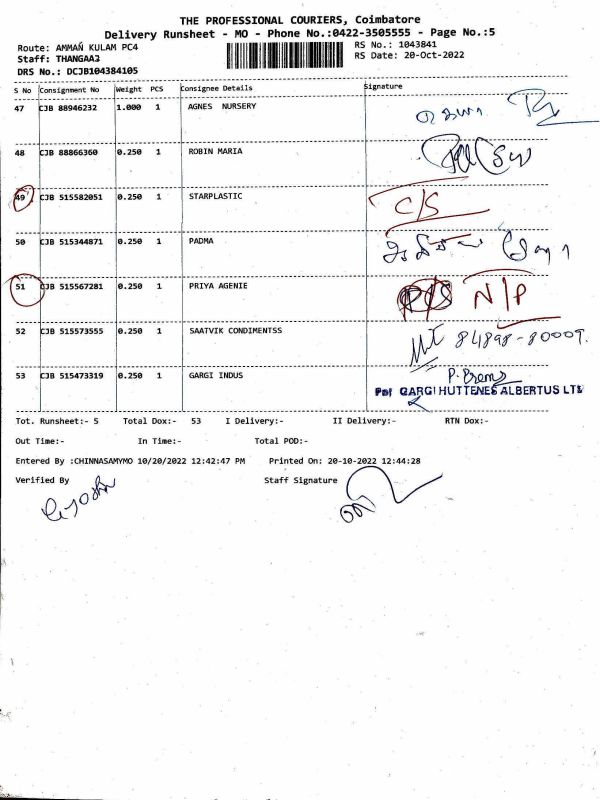 THE PROFESSIONAL COURIERS, Coimbatore
Delivery Runsheet - MO - Phone No.:0422-3505555 - Page No.:5
Route: AMMAN KULAM PC4 RS No.: 1043841
Staff: THANGAA3 RS Date: 20-Oct-2022
DRS No.: DCJB104384105
S No Consignment No Weight PCS Consignee Details Signature
47 CJB 88946232 1.000 1 AGNES NURSERY
48 CJB 88866360 0.250 1 ROBIN MARIA
49 CJB 515582051 0.250 1 STARPLASTIC C/S
50 CJB 515344871 0.250 1 PADMA
51 CJB 515567281 0.250 1 PRIYA AGENIE N/P
52 CJB 515573555 0.250 1 SAATVIK CONDIMENTSS 84898-80009.
53 CJB 515473319 0.250 1 GARGI INDUS P. Prem
For GARGI HUTTENES ALBERTUS LTD
Tot. Runsheet:- 5 Total Dox:- 53 I Delivery:- II Delivery:- RTN Dox:-
Out Time:- In Time:- Total POD:-
Entered By :CHINNASAMYMO 10/20/2022 12:42:47 PM Printed On: 20-10-2022 12:44:28
Verified By Staff Signature